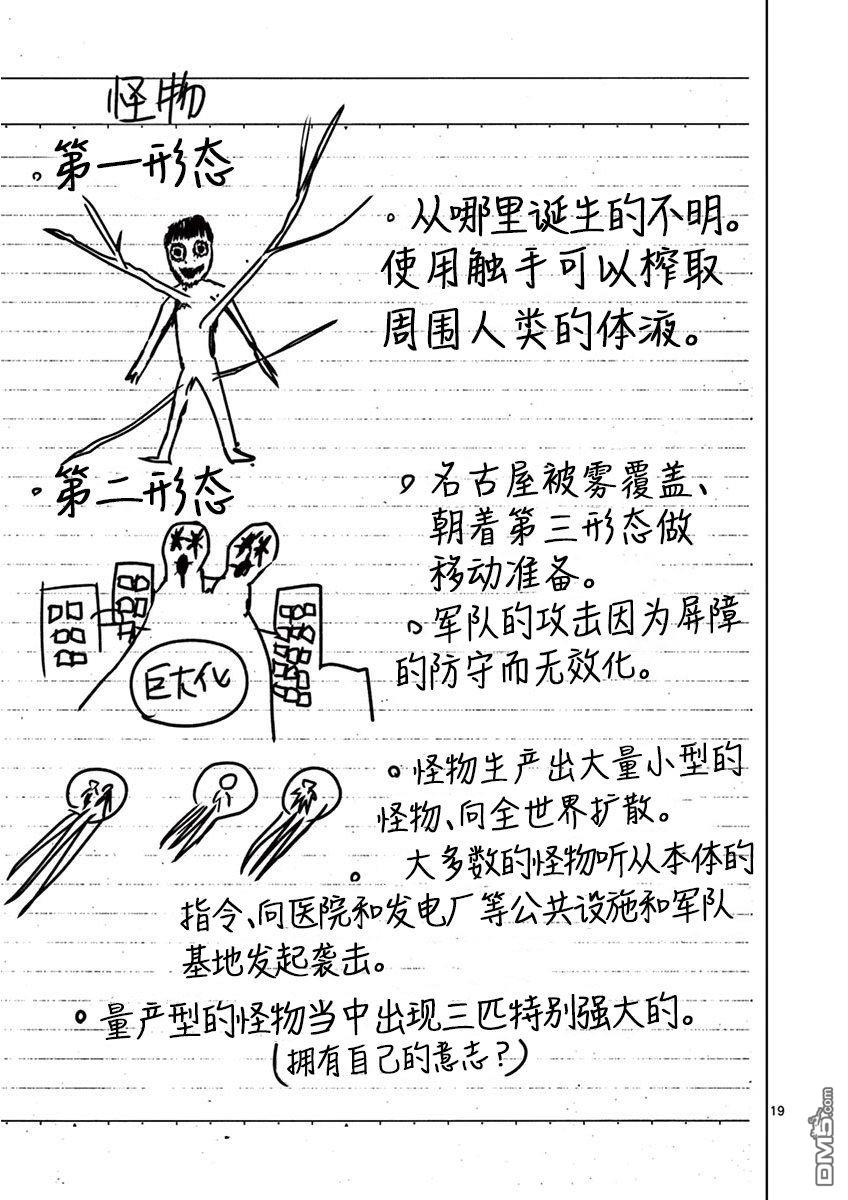 怪物
。第一形态
。从哪里诞生的不明。
使用触手可以榨取
周围人类的体液。
。第二形态
。名古屋被雾覆盖、
朝着第三形态做
移动准备。
。军队的攻击因为屏障
的防守而无效化。
巨大化
。怪物生产出大量小型的
怪物、向全世界扩散。
。大多数的怪物听从本体的
指令、向医院和发电厂等公共设施和军队
基地发起袭击。
。量产型的怪物当中出现三匹特别强大的。
(拥有自己的意志?)
19
DM5.com